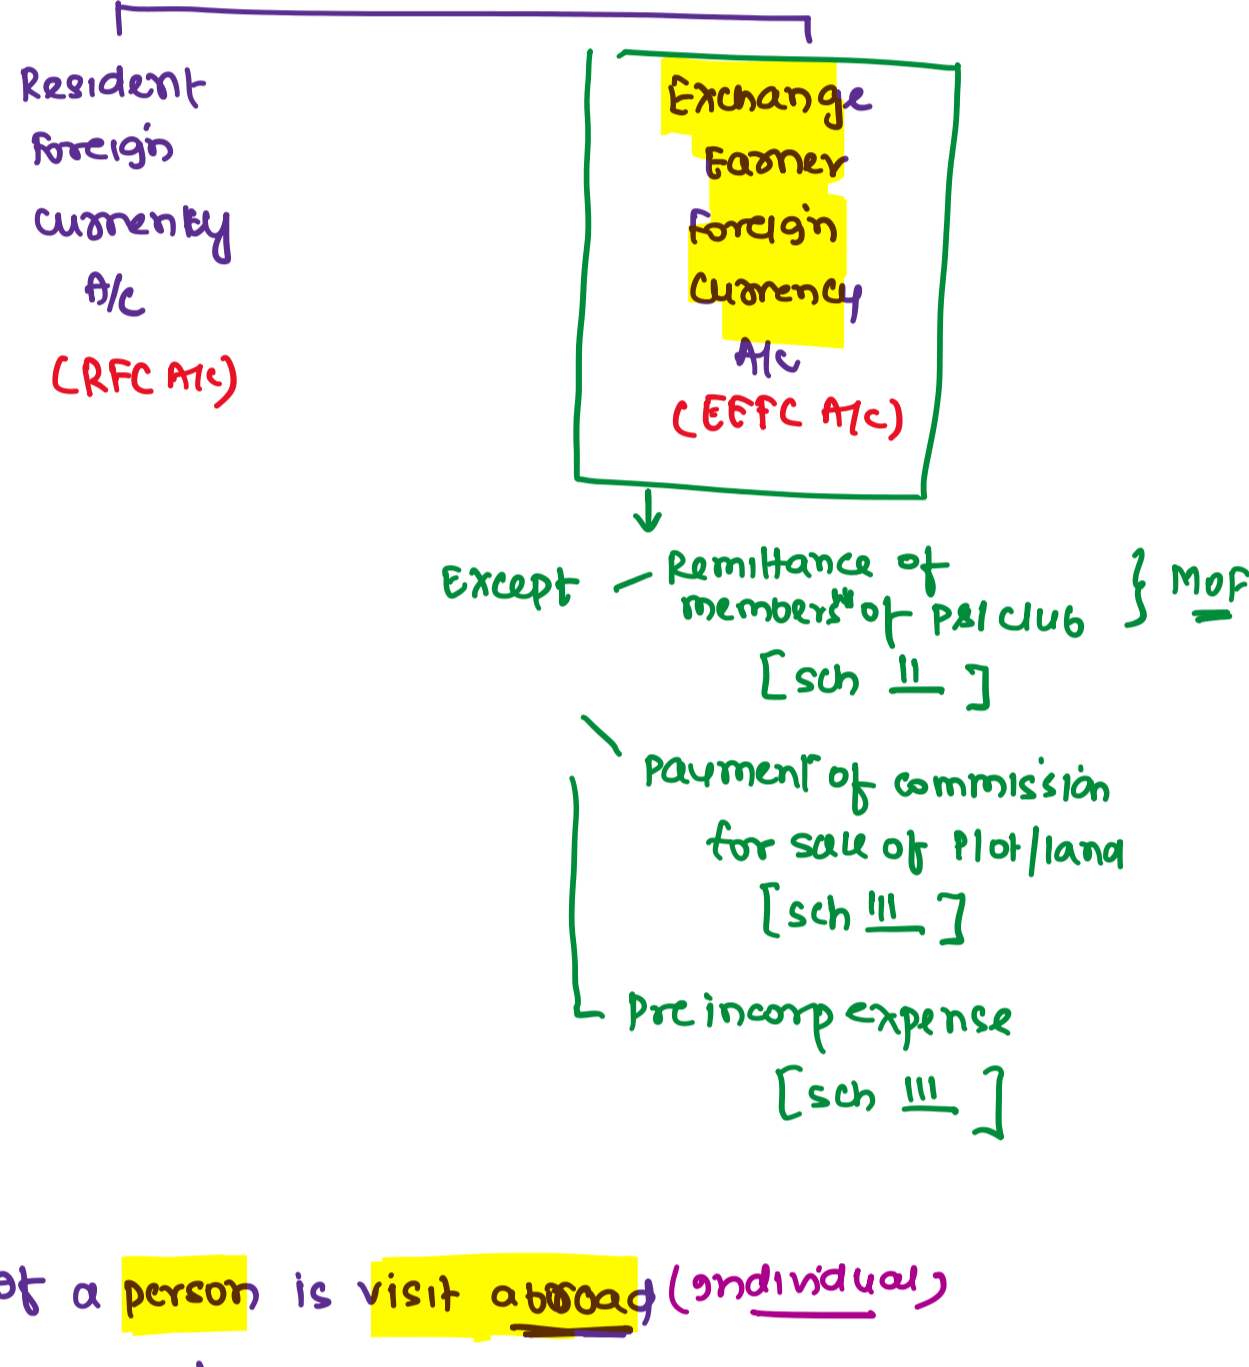 Resident
Foreign
Currency
A/C
(RFC A/C)
Exchange
Earner
Foreign
Currency
A/C
(EEFC A/C)
Except - Remittance of
members of P&I club } MOF
[sch II]
Payment of commission
for sale of Plot/land
[sch III]
Pre incorp expense
[sch III]
of a person is visit abroad (Individual)